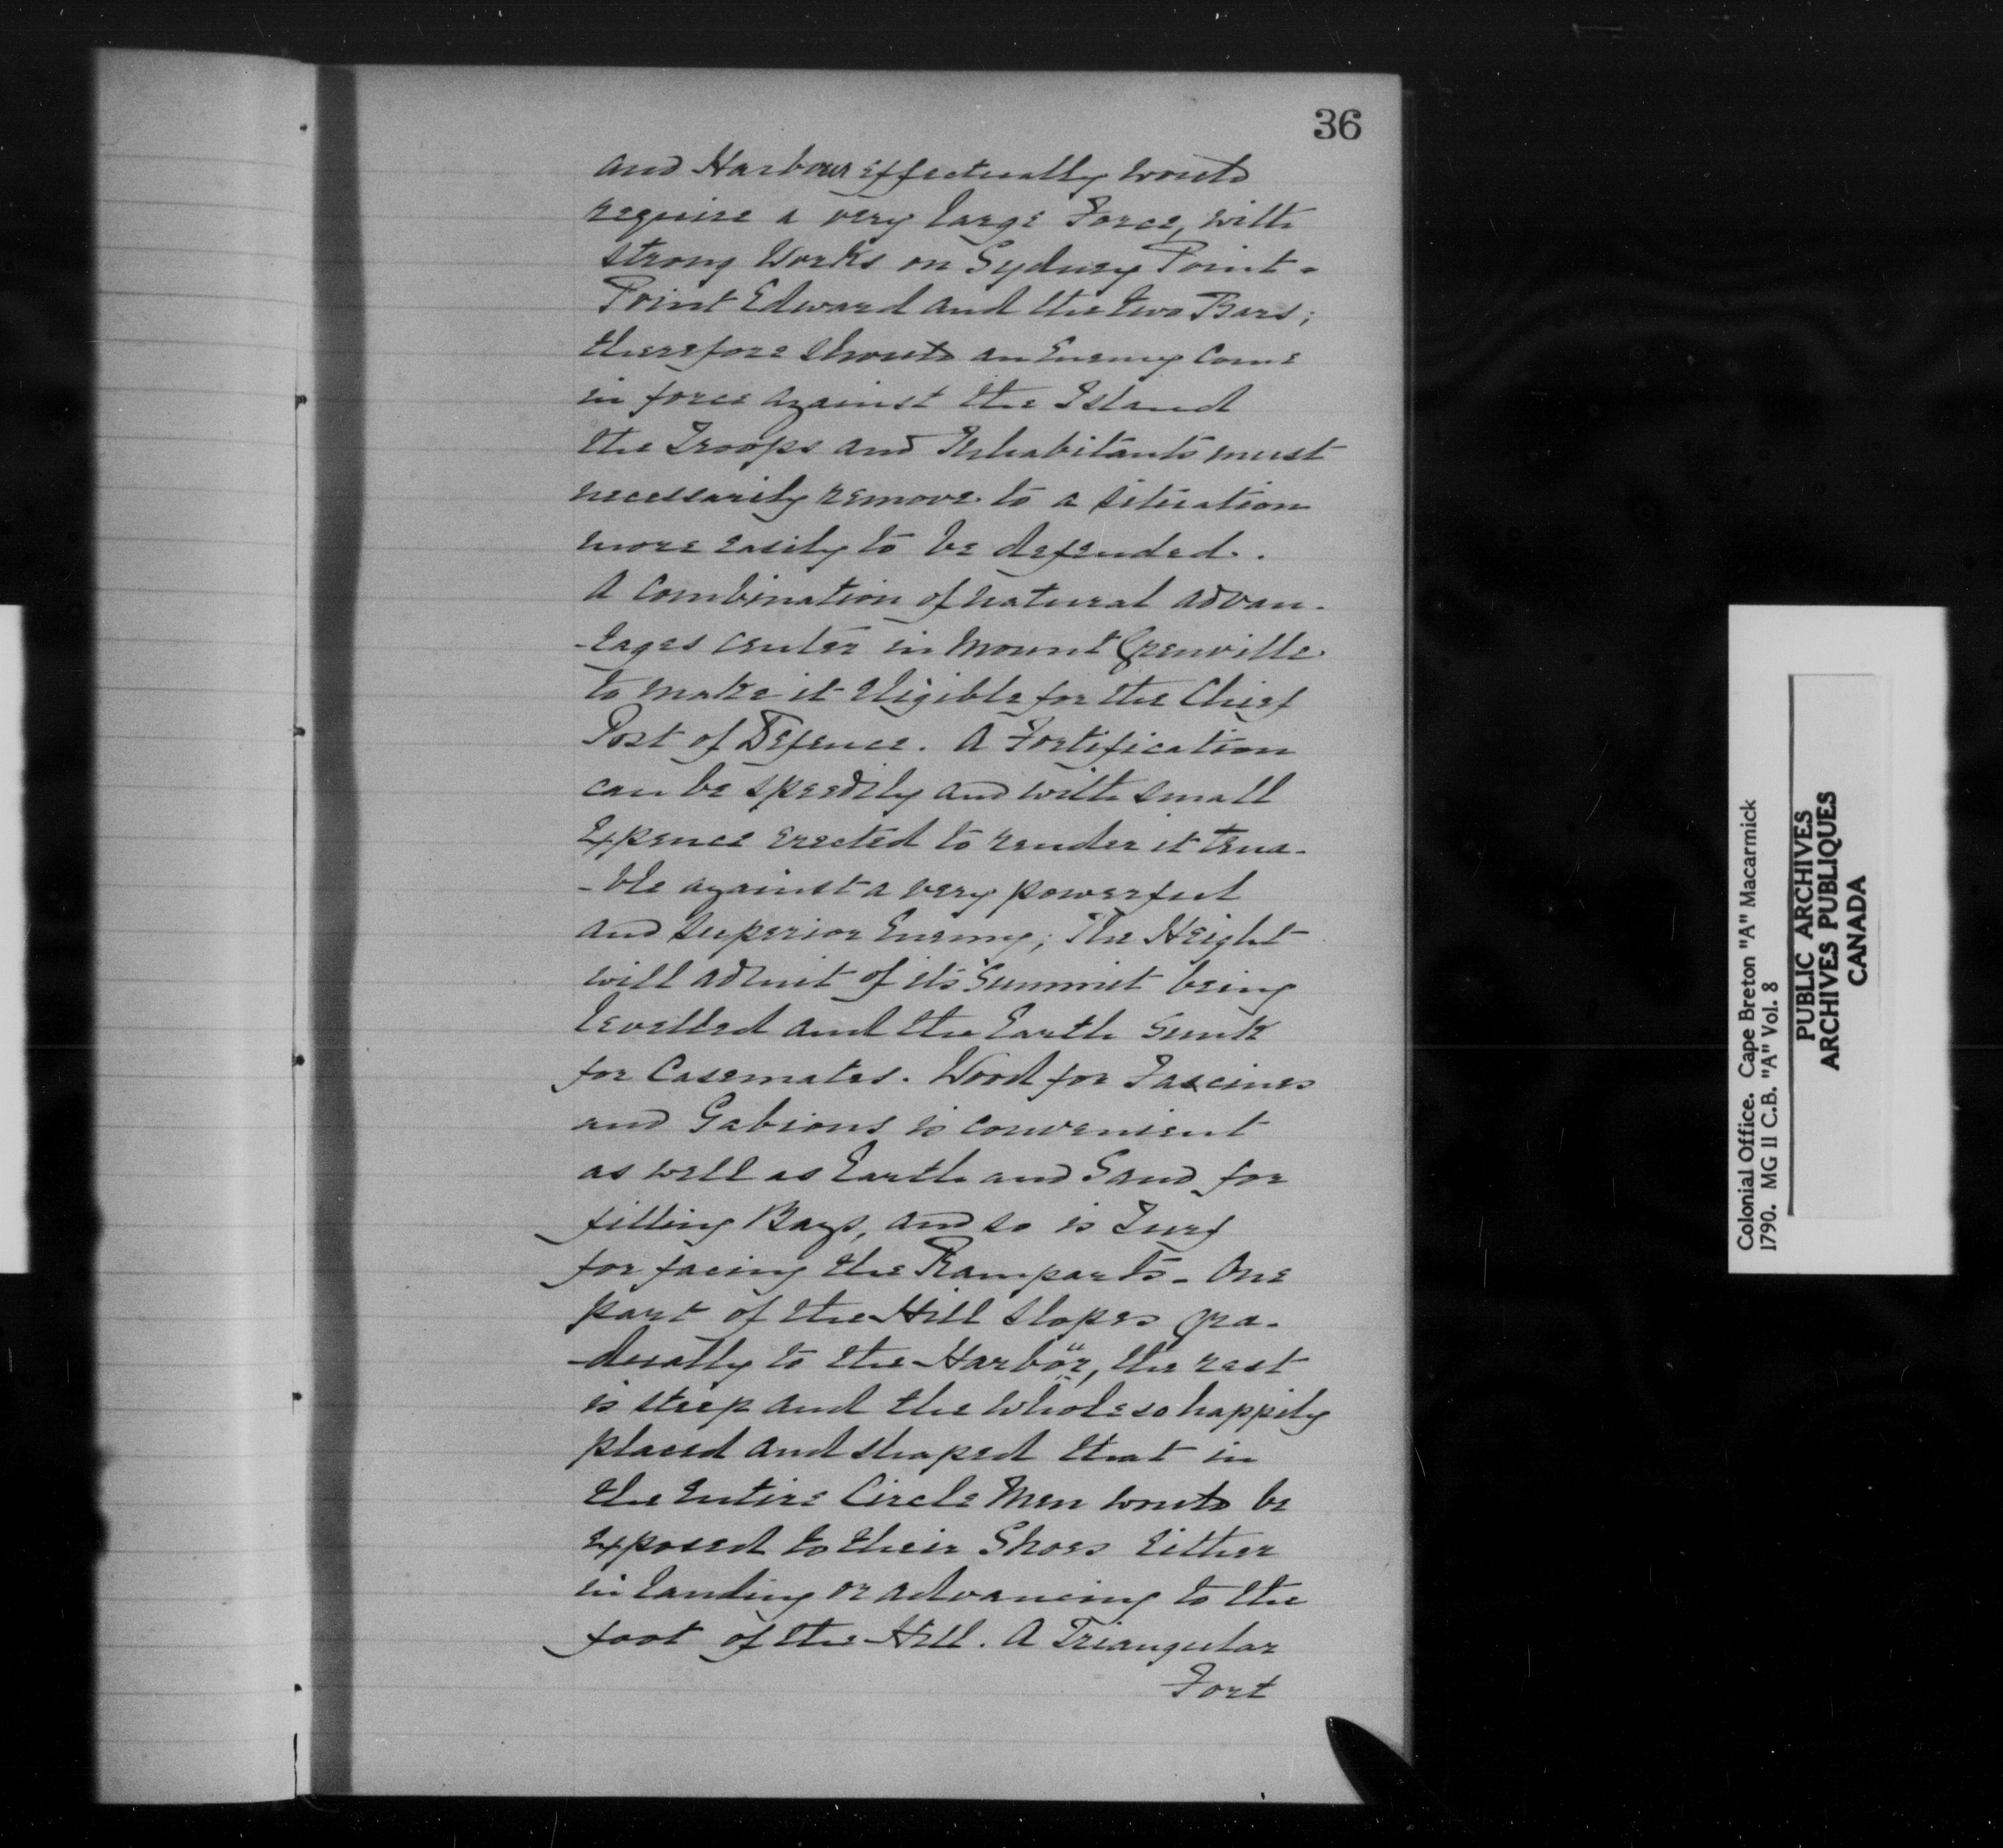 36
and Harbour effectually would
require a very large Force, with
strong Works on Sydney Point -
Point Edward and the two Bars;
therefore should an Enemy come
in force against the Island
the Troops and Inhabitants must
necessarily remove to a situation
more easily to be defended.
A combination of natural advan-
-tages center in Mount Grenville
to make it Eligible for the Chief
Post of Defence. A Fortification
can be speedily and with small
Expence erected to render it tena-
-ble against a very powerful
and superior Enemy; The Height
will admit of its Summit being
levelled and the Earth sunk
for Casemates. Wood for Fascines
and Gabions is convenient
as well as Earth and Sand for
filling Bags, and so is Turf
for facing the Ramparts - One
part of the Hill slopes gra-
-dually to the Harbör, the rest
is steep and the whole so happily
placed and shaped that in
the entire Circle Men would be
exposed to their Shoes Either
in landing or advancing to the
foot of the Hill. A Triangular
Fort
Colonial Office. Cape Breton "A" Macarmick
1790. MG 11 C.B. "A" Vol. 8
PUBLIC ARCHIVES
ARCHIVES PUBLIQUES
CANADA